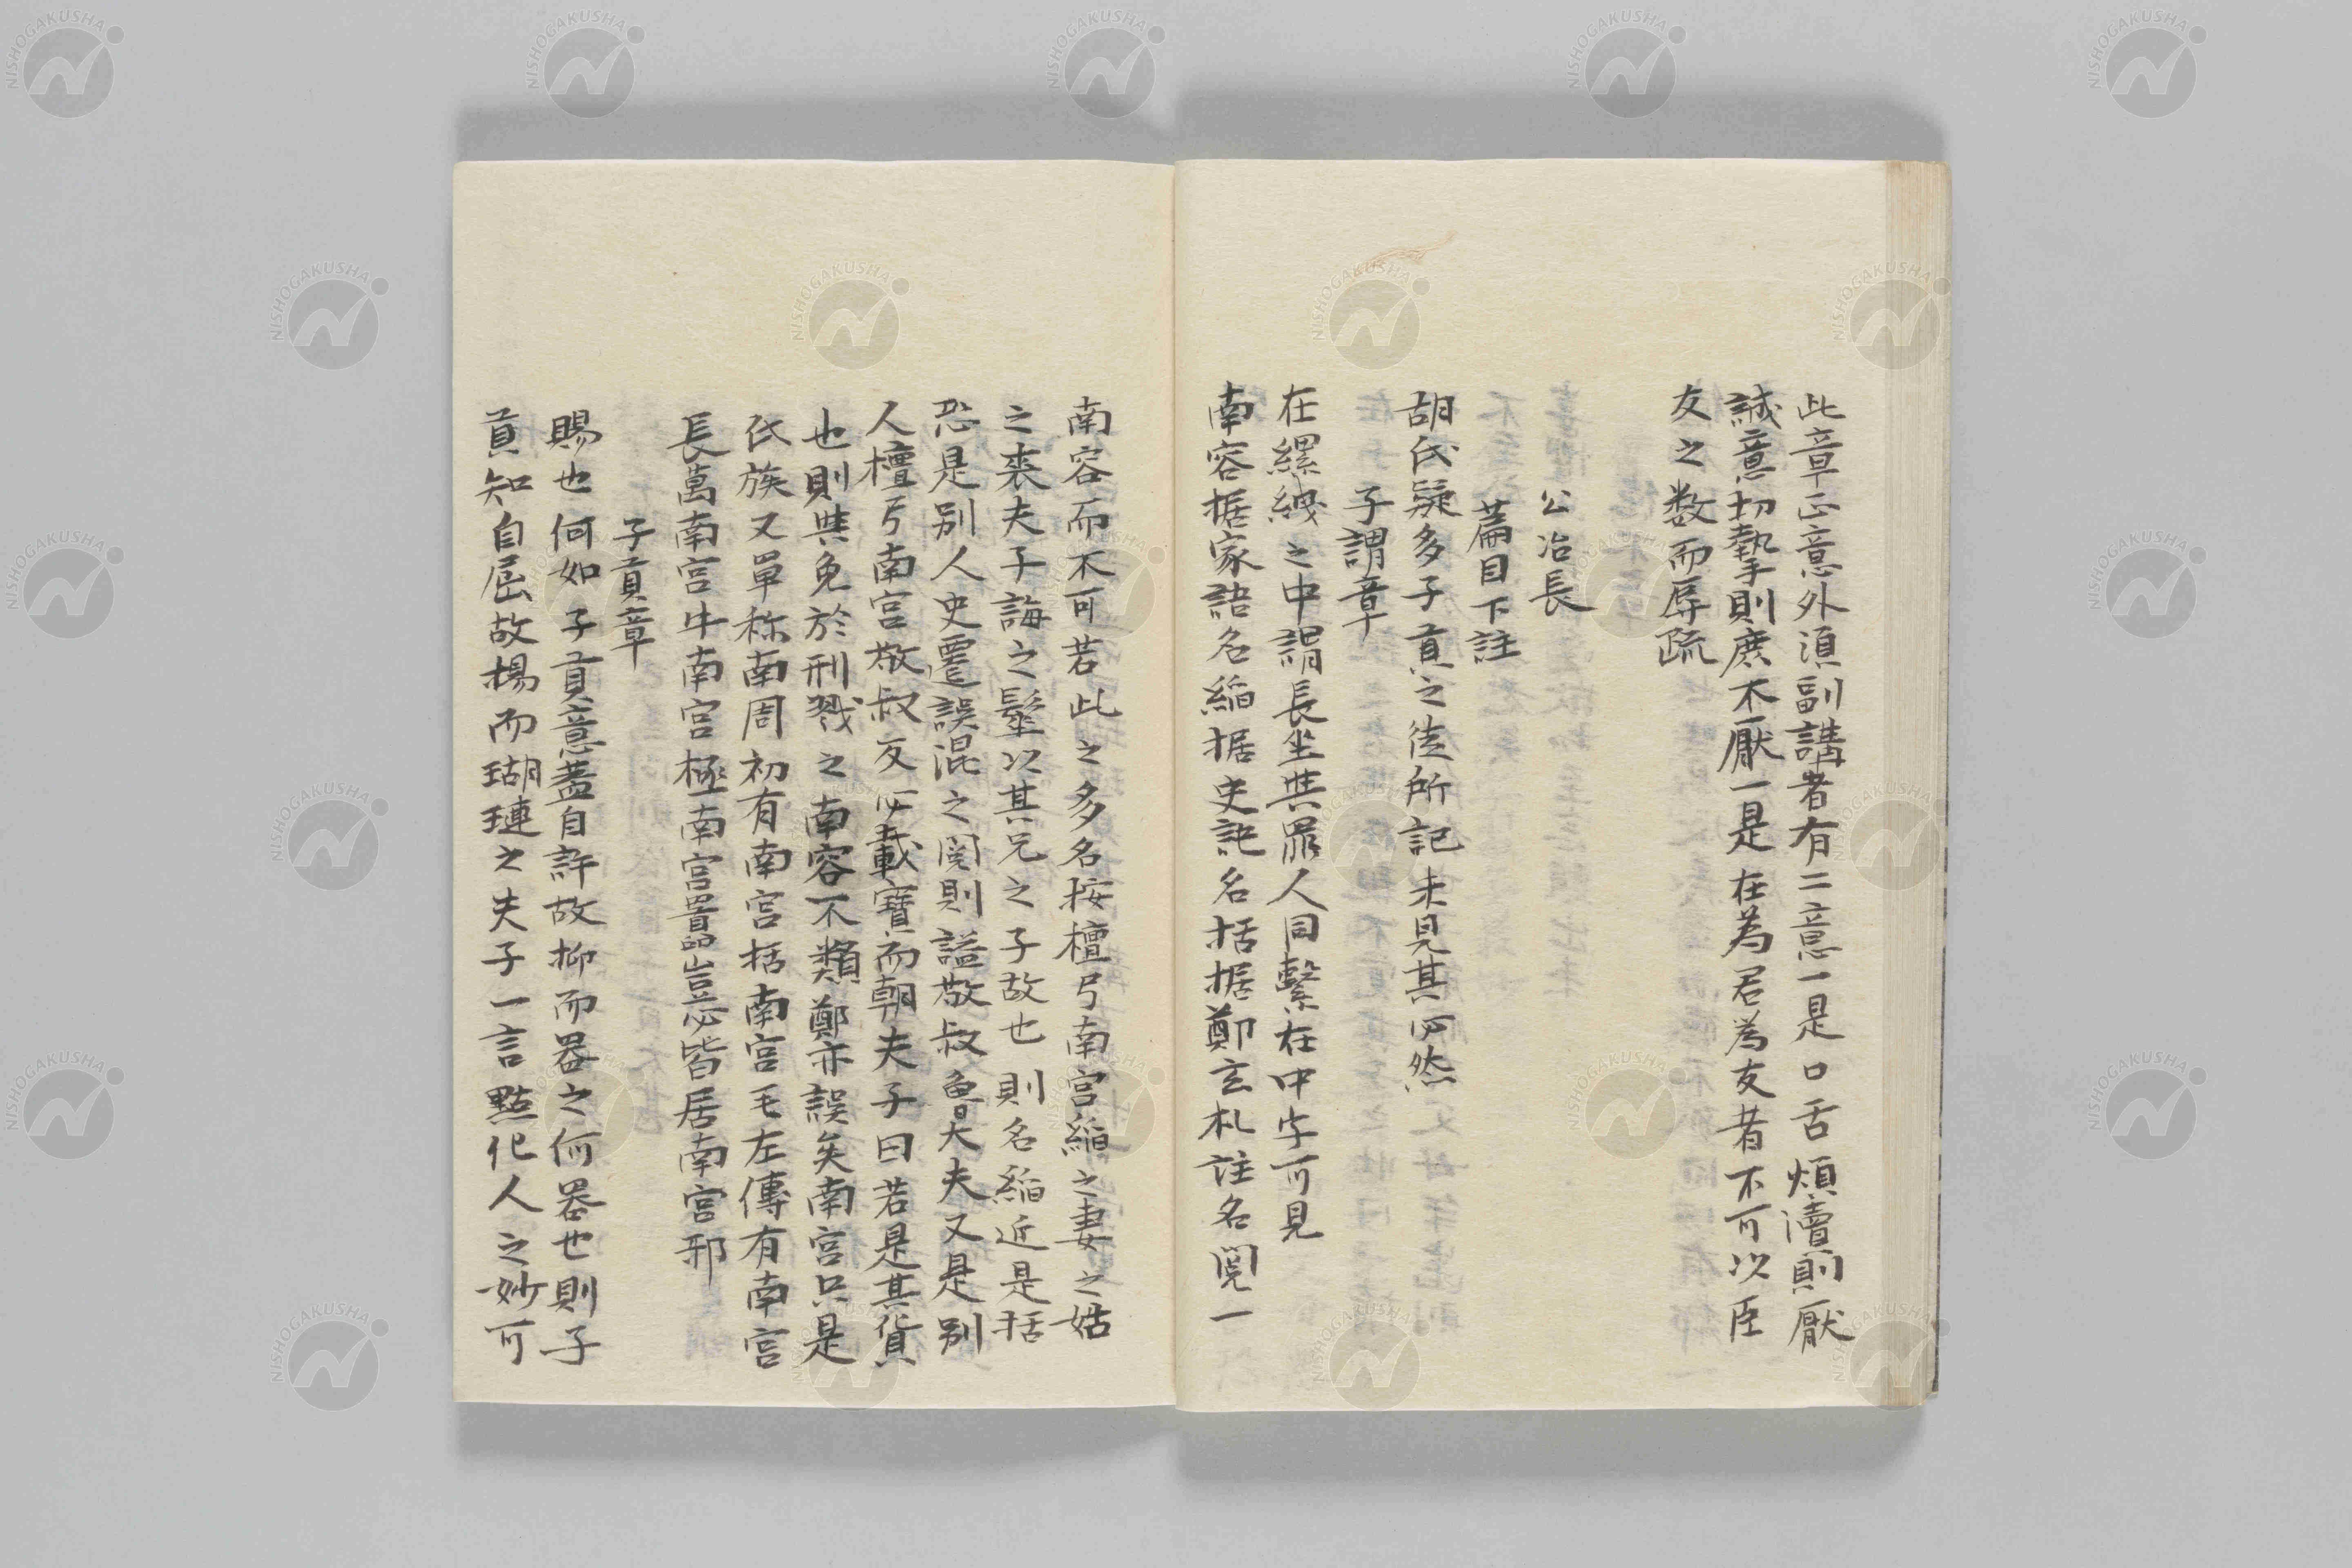 此章正意外湏副講者有二意一是口舌煩瀆則厭
誠意切摯則庶不厭一是在為君為友者不可以臣
友之数而辱疏
公冶長
篇目下註
胡氏疑多子貢之徒所記未見其必然
子謂章
在縲絏之中謂長坐無罪人同繫在中字可見
南容据家語名縚据史記名括据鄭玄礼註名閱一
南容而不可若此之多名按檀弓南宮縚之妻之姑
之喪夫子誨之髽以其兄之子故也則名縚近是括
恐是别人史遷誤混之閱則謚敬叔魯大夫又是别
人檀弓南宮敬叔反必載寶而朝夫子曰若是其貨
也則與免於刑戮之南容不類鄭亦誤矣南宮只是
氏族又單称南周初有南宮括南宮毛左傳有南宮
長萬南宮牛南宮極南宮嚚豈必皆居南宮邪
子貢章
賜也何如子貢意蓋自許故抑而器之何器也則子
貢知自屈故揚而瑚璉之夫子一言點化人之妙可
NISHOGAKUSHA